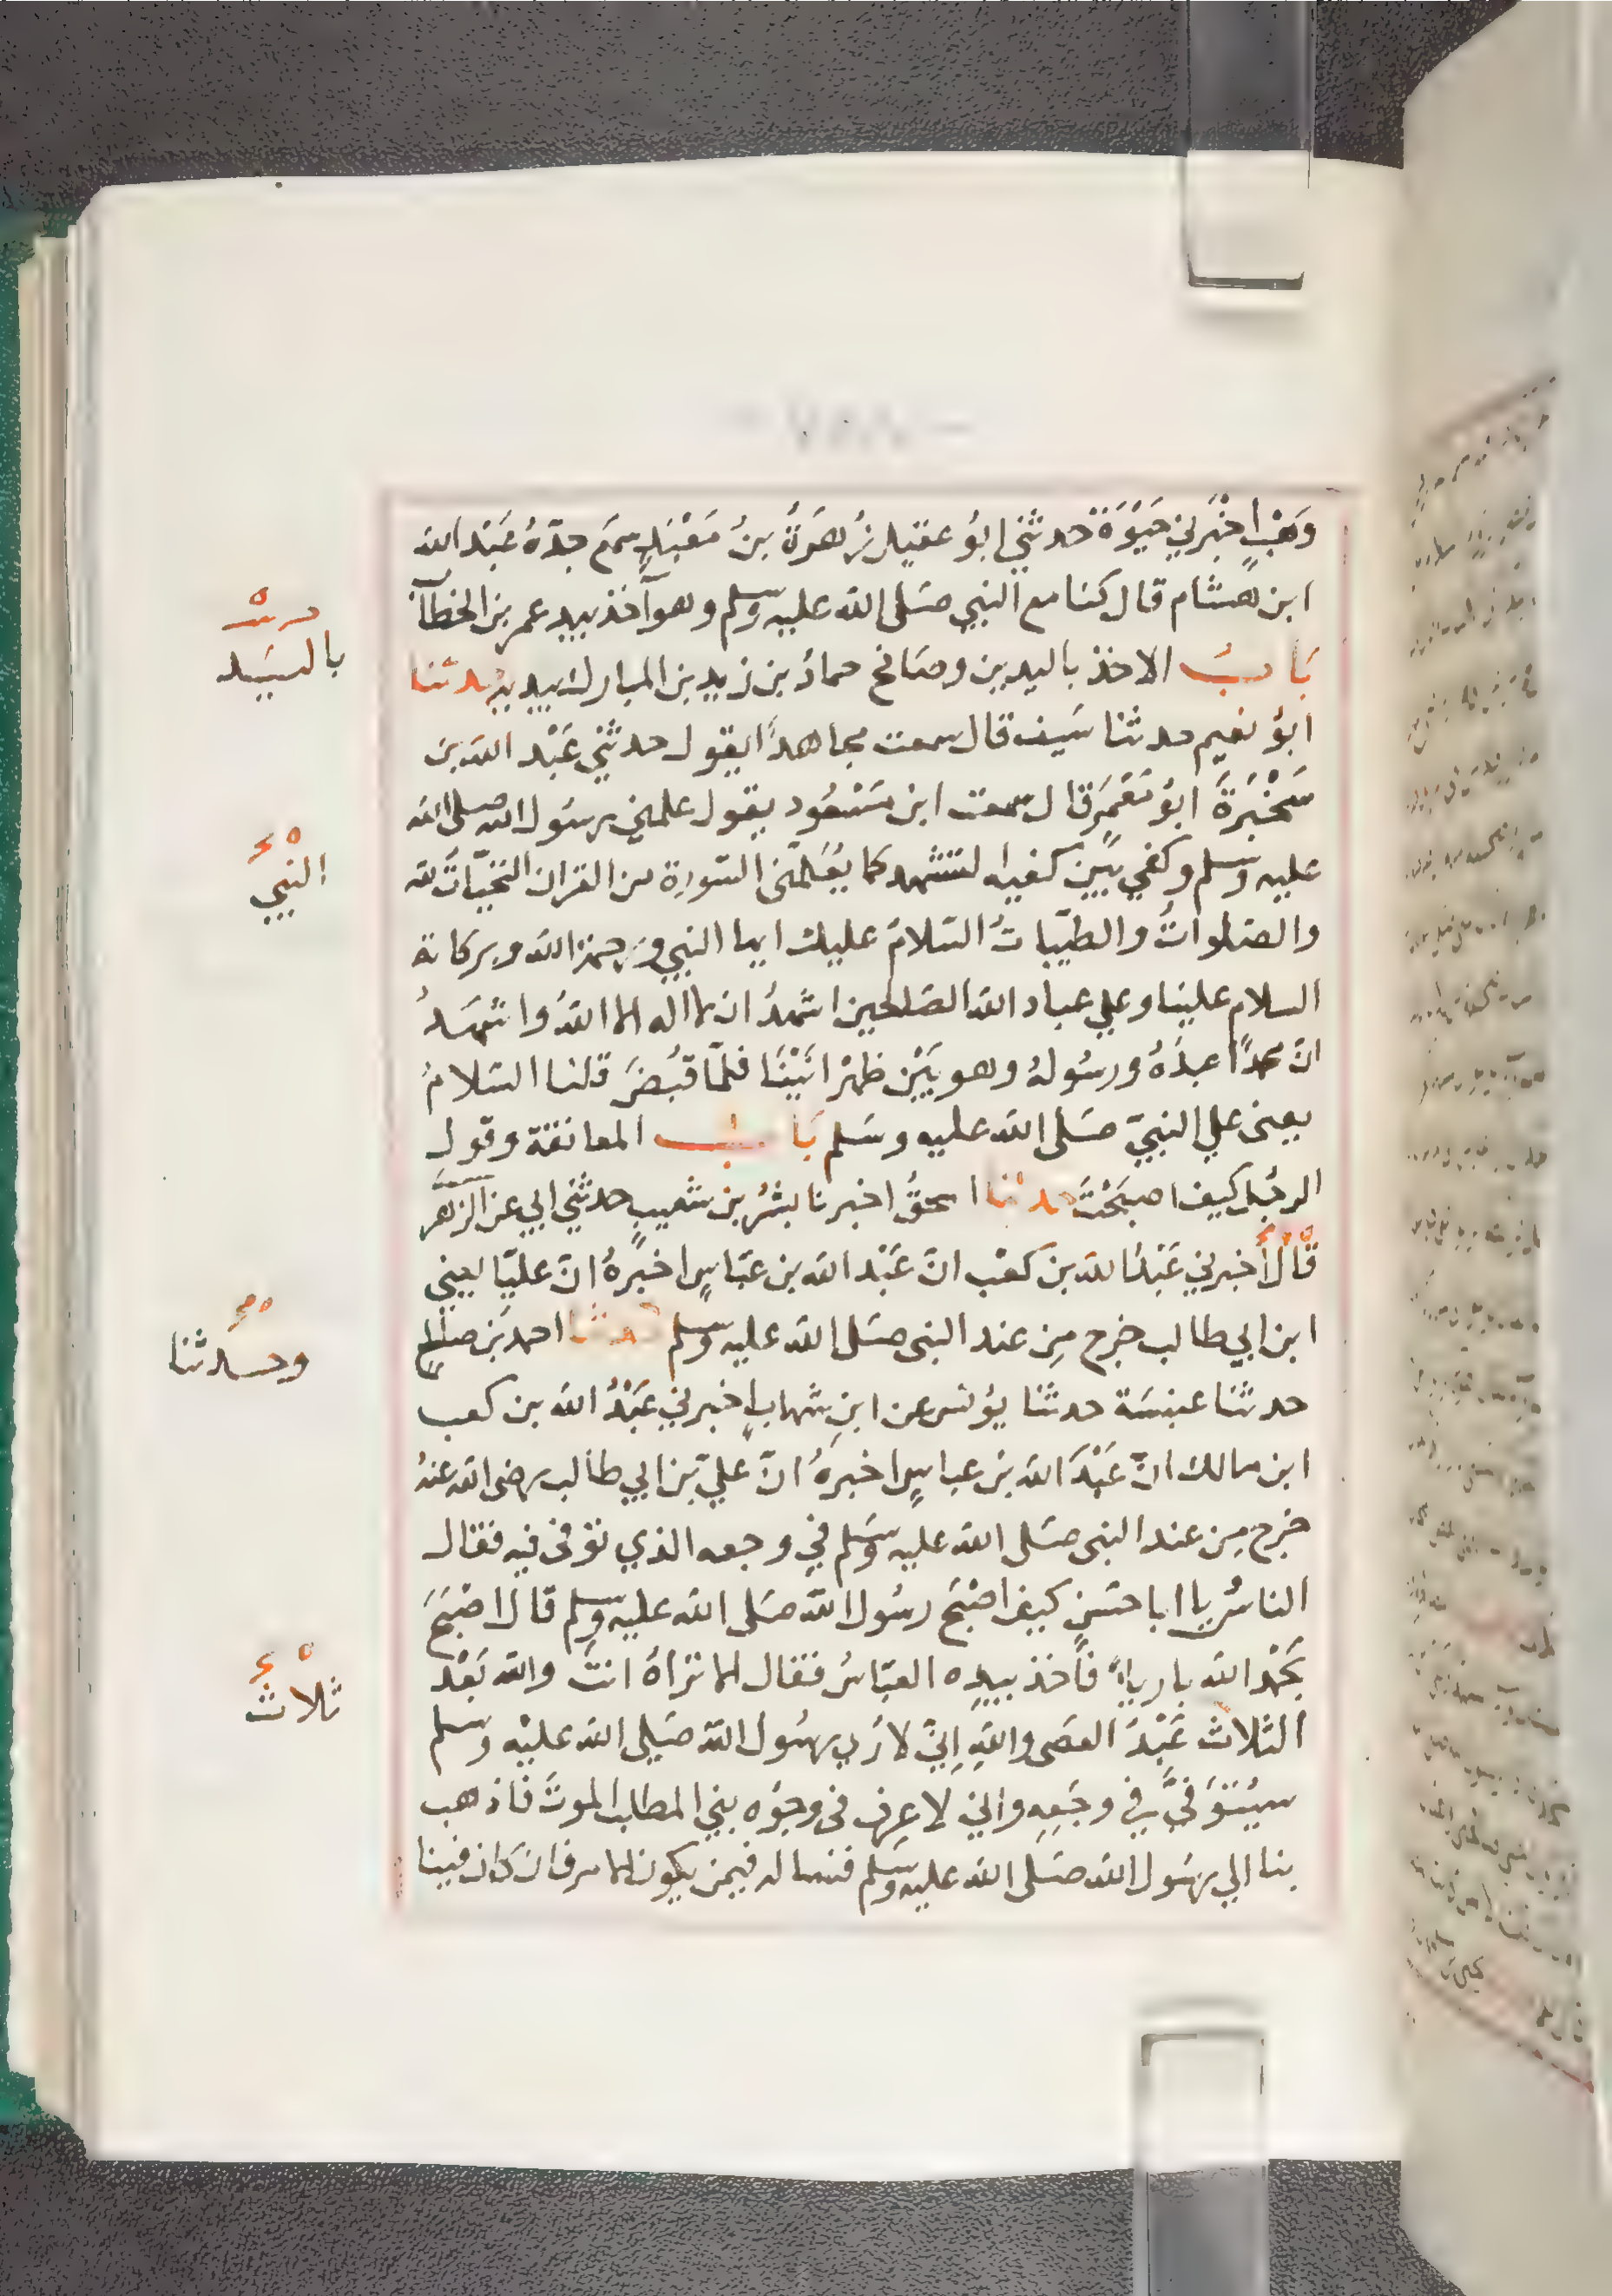 وَهْبٍ اخْبَرَني حَيْوَة حدثني ابوُ عقيل زُهرَةُ بنُ مَعْبَدٍ سمَع جدّهُ عَبْد الله
ابن هشام قال كنا مع النبي صَلى الله عليه وسلم وهو آخذ بيد عمر بن الخطاب
بَابُ الاخذ باليدين وصَافح حمادُ بن زيد بن المبارك بيديه حدثنا
ابوُ نعيم حدثنا سَيف قال سمعت مجاهداً يقول حدثني عَبْد الله بن
سَخْبَرَةَ ابوُ مَعْمَرٍ قال سمعت ابن مَسْعُود يقول علمني رسَول الله صلى الله
عليه وسلم وكفي بَيْن كفيه التشهد كما يُعَلّمني السّورة من القران التحيّاتُ لله
والصّلواتُ والطيّباتُ السّلامُ عليك ايها النبي ورَحمة الله وبركاته
السلام علينا وعلي عباد الله الصّلحين اشهدُ ان لا اله الا اللهُ واشهَدُ
انّ محمداً عبدُهُ ورسُولهُ وهو بَيْن ظهْرَانَيْنَا فلمّا قبُضَ قلنا السّلامُ
يعنى علي النبيّ صَلى الله عليه وسَلم بَابُ المعانقة وقول
الرجُل كيف اصبَحْتَ حدثنا اسحقُ اخبرنا بشْرُ بن شعيبٍ حدثني ابي عن الزهري
قال أخبرني عَبْدُ الله بن كعْب انّ عَبْد الله بن عبّاسٍ اخبرهُ انّ عليّا يعني
ابن ابي طالب خرج مِن عند النبى صَلى الله عليه وسلم حدثنا احمد بَن صلح
حدثنا عنبسَة حدثنا يوُنس عن ابنِ شهابٍ اخبرني عَبْدُ الله بن كعب
ابن مالك انّ عَبْدَ الله بن عباسٍ اخبرَهُ انّ عليّ بن ابي طالب رضى الله عنهُ
خرج مِن عند النبى صَلى الله عليه وسَلم في وجعه الذي توفى فيه فقال
الناسُ يا ابا حسَنٍ كيف اصْبَح رسُول الله صَلى الله عليه وسلم قال اصْبَحَ
بحَمْد الله بارياً فأخذ بيدِه العبّاسُ فقال الا تراهُ انتَ والله بَعْد
الثلاث عَبْدُ العصَى واللهِ إني لارَي رسُول الله صَلى الله عليْه وسلم
سيُتوَفيّ في وجَعِهِ واني لاعِرف فى وجوُه بني المطلب الموتَ فاذهب
بنا الي رسَول الله صَلى الله عليه وسَلم فنساله فيمن يكون الامر فان كان فينا
باليَد
النبيّ
وحدثنا
ثلاث